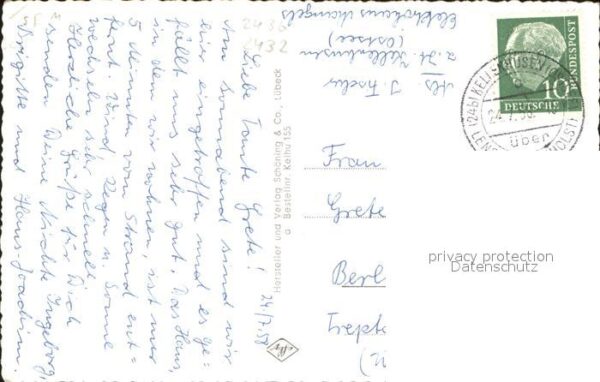 24/7.58
Liebe Tante Grete!
Am Sonnabend sind wir
hier eingetroffen und es ge-
fällt uns sehr gut. Das Haus,
in dem wir wohnen, ist nur
5 Minuten vom Strand ent-
fernt. Wind, Regen u. Sonne
wechseln sehr schnell.
Herzliche Grüße für Dich
senden Deine Nichte Ingeborg,
Brigitte und Hans-Joachim.
2436
2432
Hersteller und Verlag Schöning & Co., Lübeck
Bestellnr. Kelhu 155
Abs.
J. Fischer
z. Zt. Kellenhusen
(Ostsee)
DEUTSCHE
BUNDESPOST
10
(24b) KELLENHUSEN
24.7.58
über
Frau
Grete
Berl
Trepto
privacy protection
Datenschutz